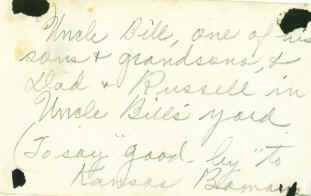 Uncle Bill, one of his
sons & grandsons, &
Dad & Russell in
Uncle Bill's yard
(To say "good by" to
Kansas